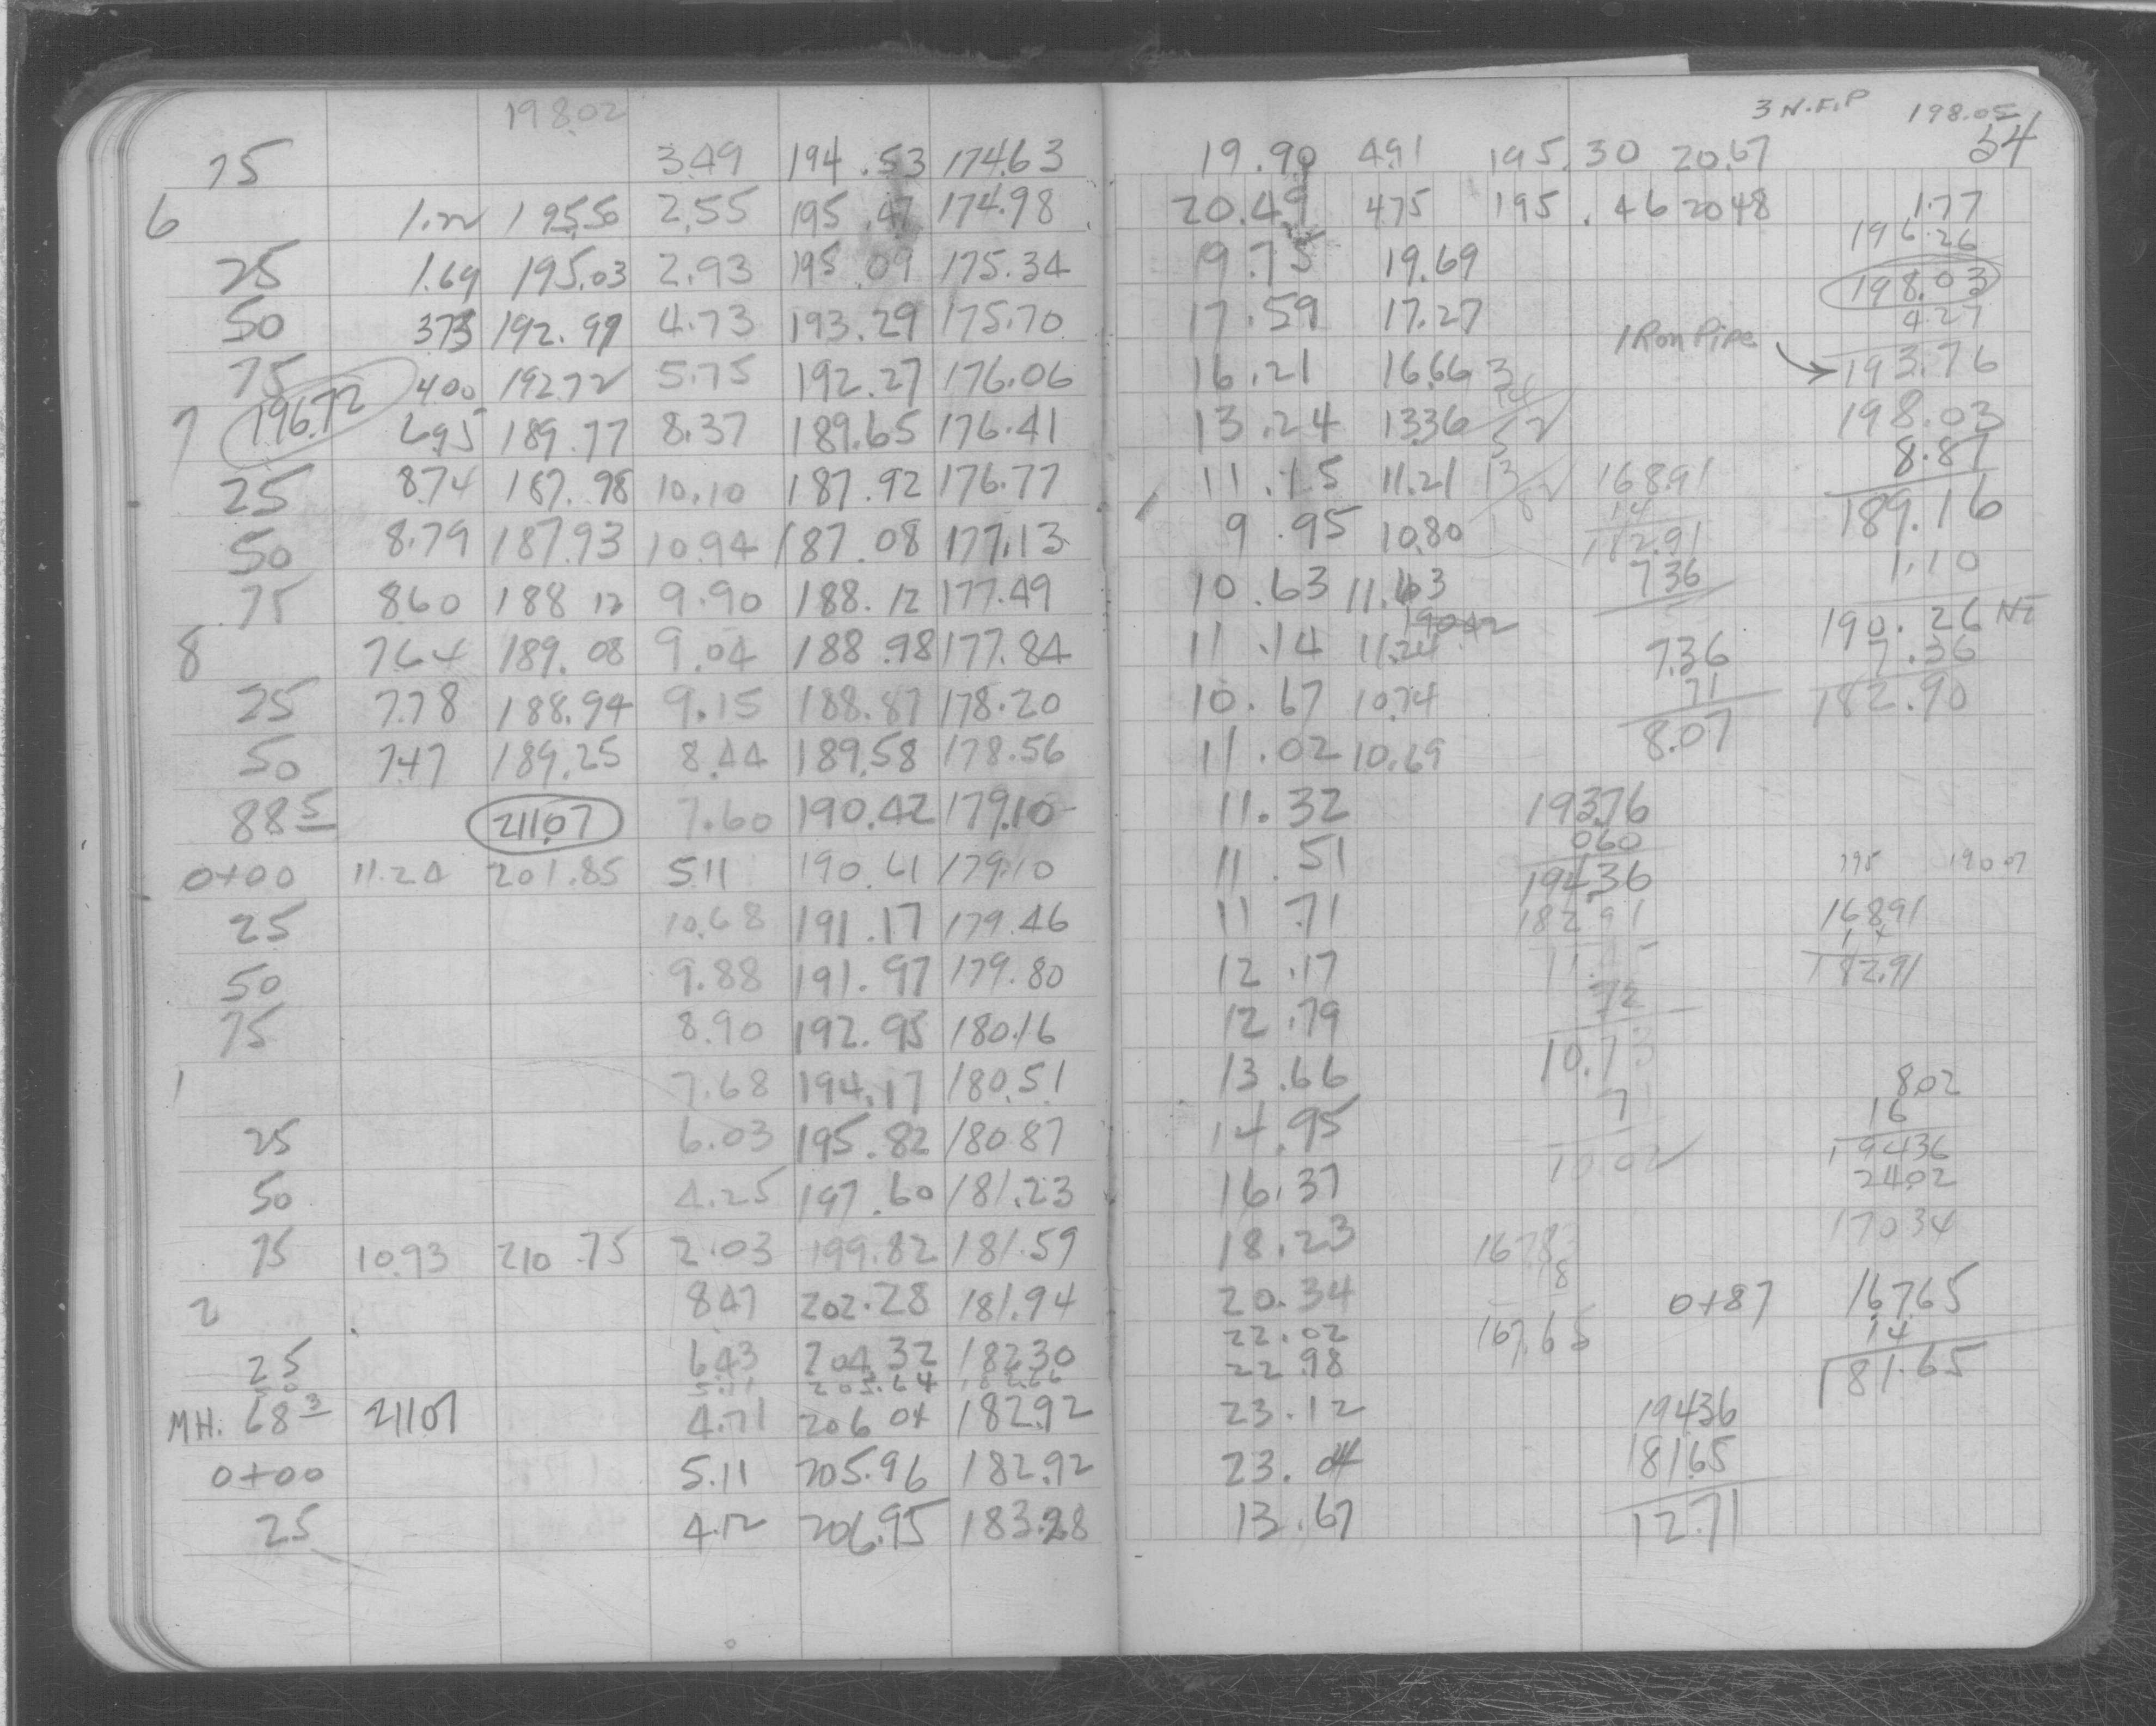 198.02
75 3.49 194.53 174.63
6 1.22 195.50 2.55 195.47 174.98
25 1.69 195.03 2.93 195.09 175.34
50 373 192.99 4.73 193.29 175.70
75 400 192.72 5.75 192.27 176.06
196.72
7 6.95 189.77 8.37 189.65 176.41
25 874 187.98 10.10 187.92 176.77
50 8.79 187.93 10.94 187.08 177.13
75 860 188 12 9.90 188.12 177.49
8 764 189.08 9.04 188.98 177.84
25 7.78 188.94 9.15 188.87 178.20
50 747 189.25 8.44 189.58 178.56
88 5 211.07 7.60 190.42 179.10
0+00 11.24 201.85 511 190.61 179.10
25 10.68 191.17 179.46
50 9.88 191.97 179.80
75 8.90 192.95 180.16
1 7.68 194.17 180.51
25 6.03 195.82 180.87
50 4.25 197.60 181.23
75 10.93 210.75 2.03 199.82 181.59
2 847 202.28 181.94
25 643 204.32 182.30
205.64
MH. 68 3 21107 4.71 206 04 182.92
0+00 5.11 205.96 182.92
25 4.12 206.95 183.28
3 N.F.P 198.05
54
19.90 4.91 195.30 20.67
20.49 475 195.46 2048
19.75 19.69
17.59 17.27
16.21 16.66
13.24 1336
11.15 11.21
9.95 10.80
10.63 11.63
11.14 11.24
10.67 10.74
11.02 10.69
11.32
11.51
11.71
12.17
12.79
13.66
14.95
16.37
18.23
20.34
22.02
22.98
23.12
23.04
13.67
1.77
196.26
198.03
4.27
Iron Pipe
193.76
198.03
8.87
189.16
1.10
190.26
7.36
182.90
168.91
14
182.91
736
7.36
71
8.07
193.76
060
194.36
182 91
72
10.73
7
10.02
16891
14
182.91
802
16
19436
2402
17034
167.65
0+87 16765
14
181.65
19436
18165
12.71